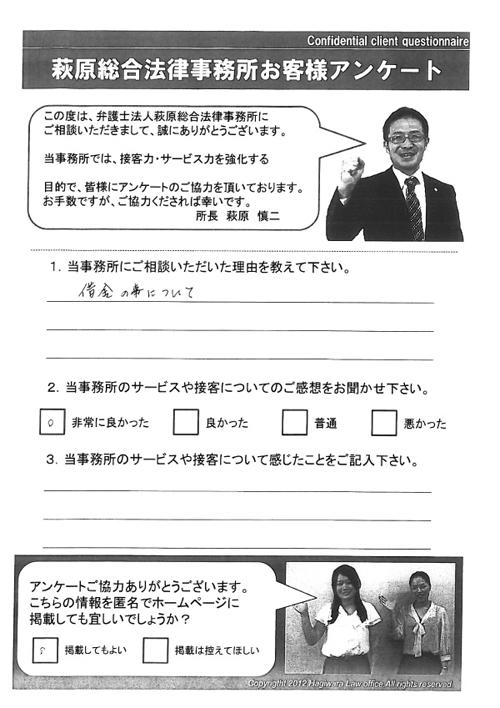 Confidential client questionnaire
萩原総合法律事務所お客様アンケート
この度は、弁護士法人萩原総合法律事務所に
ご相談いただきまして、誠にありがとうございます。
当事務所では、接客力・サービス力を強化する
目的で、皆様にアンケートのご協力を頂いております。
お手数ですが、ご協力くだされば幸いです。
所長 萩原 慎二
1. 当事務所にご相談いただいた理由を教えて下さい。
借金の事について
2. 当事務所のサービスや接客についてのご感想をお聞かせ下さい。
○ 非常に良かった 良かった 普通 悪かった
3. 当事務所のサービスや接客について感じたことをご記入下さい。
アンケートご協力ありがとうございます。
こちらの情報を匿名でホームページに
掲載しても宜しいでしょうか?
○ 掲載してもよい 掲載は控えてほしい
Copyright 2012 Hagiwara Law office All rights reserved